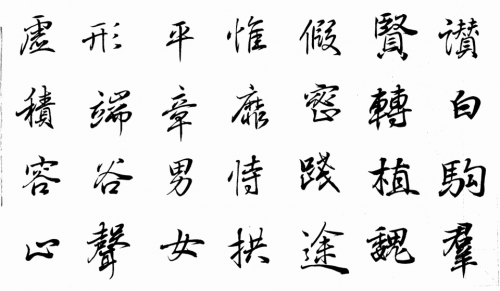 讃白駒羣
賢轉植魏
假密踐途
惟靡恃拱
平章男女
形端谷聲
虛積容心